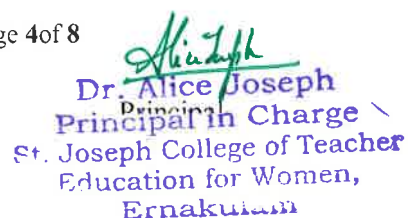 ge 4of 8
Dr. Alice Joseph
Principal
Principal in Charge
St. Joseph College of Teacher
Education for Women,
Ernakulam